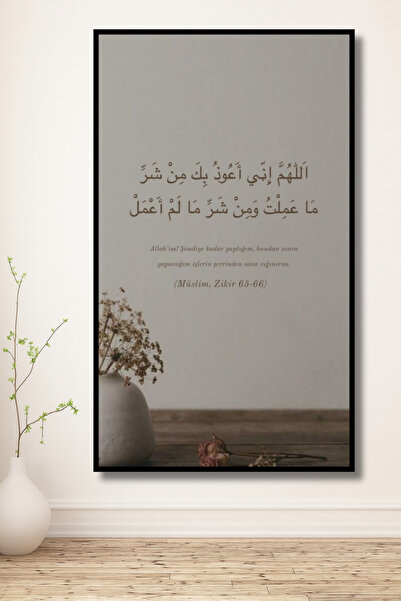 اَللّٰهُمَّ إِنِّي أَعُوذُ بِكَ مِنْ شَرِّ
مَا عَمِلْتُ وَمِنْ شَرِّ مَا لَمْ أَعْمَلْ
Allah'ım! Şimdiye kadar yaptığım, bundan sonra
yapacağım işlerin şerrinden sana sığınırım.
(Müslim, Zikir 65-66)